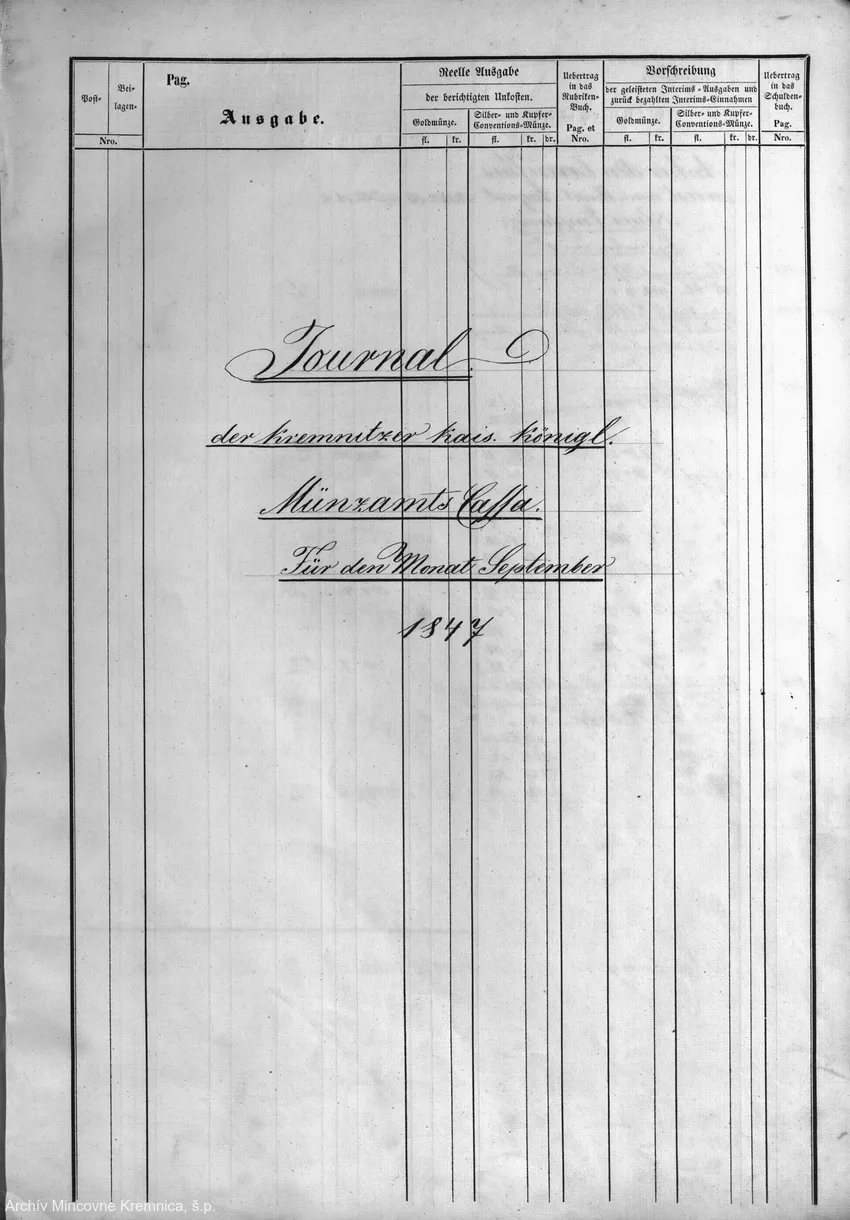 Post-
Bei-
lagen-
Nro.
Pag.
Ausgabe.
Reelle Ausgabe
der berichtigten Unkosten.
Goldmünze.
Silber- und Kupfer-
Conventions-Münze.
fl. kr. fl. kr. dr.
Uebertrag
in das
Rubriken-
Buch.
Pag. et
Nro.
Vorschreibung
der geleisteten Interims-Ausgaben und
zurück bezahlten Interims-Einnahmen
Goldmünze.
Silber- und Kupfer-
Conventions-Münze.
fl. kr. fl. kr. dr.
Uebertrag
in das
Schulden-
buch.
Pag.
Nro.
Journal.
der Kremnitzer kais. königl.
Münzamts Cassa.
Für den Monat September
1847
Archív Mincovne Kremnica, š.p.